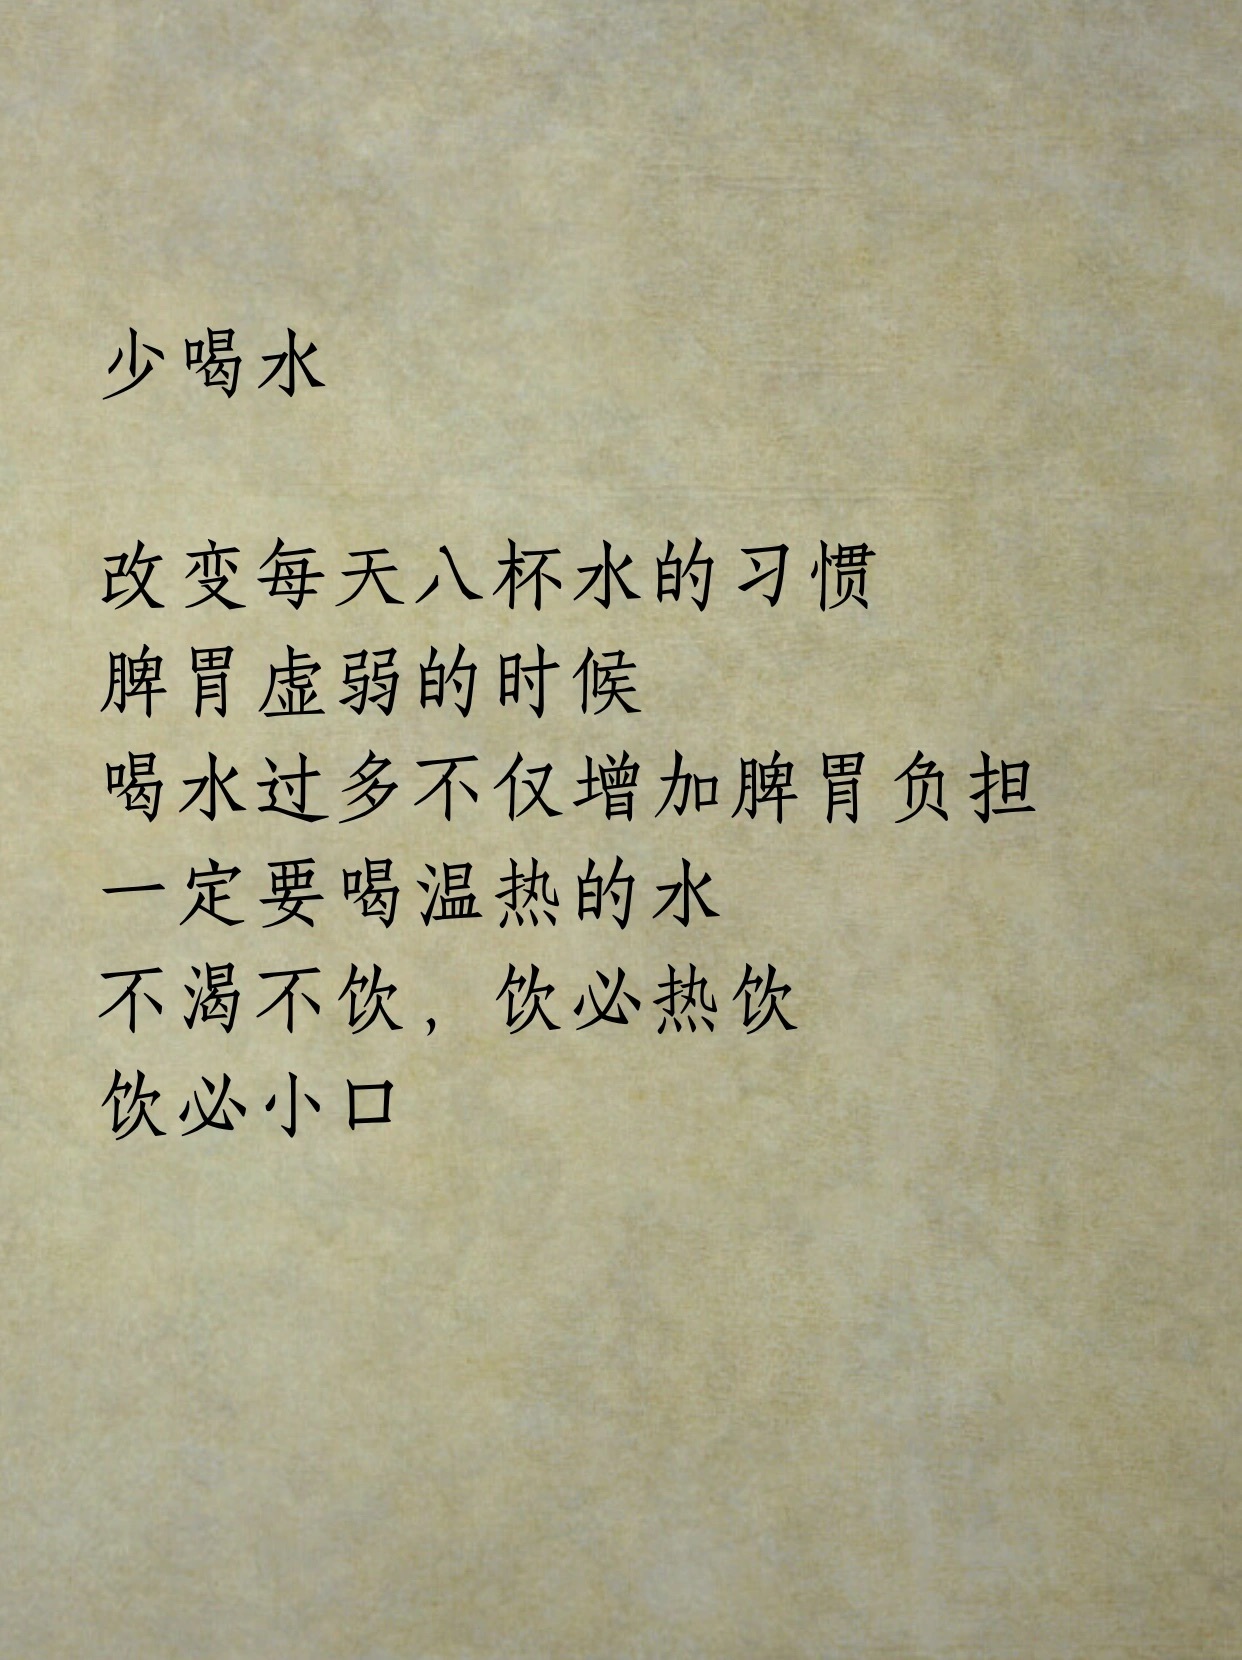 少喝水
改变每天八杯水的习惯
脾胃虚弱的时候
喝水过多不仅增加脾胃负担
一定要喝温热的水
不渴不饮，饮必热饮
饮必小口